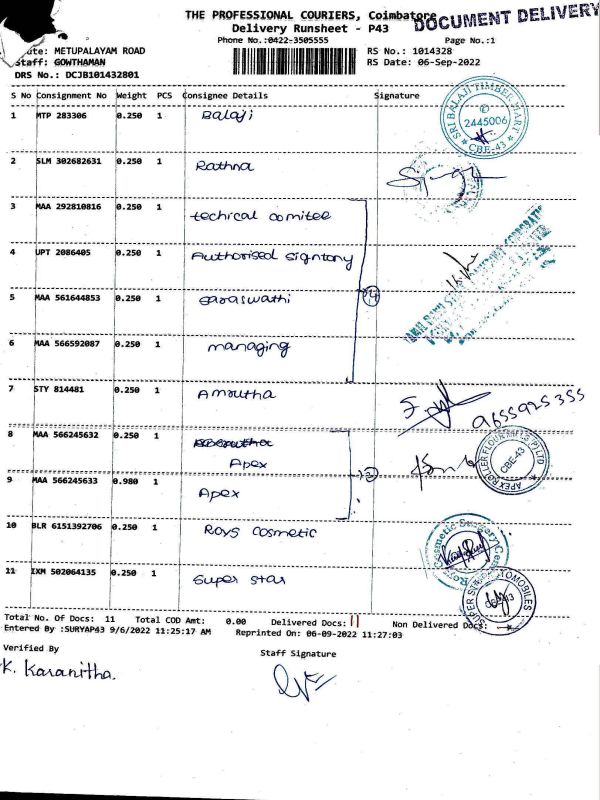 THE PROFESSIONAL COURIERS, Coimbatore
DOCUMENT DELIVERY
Delivery Runsheet - P43
Phone No.:0422-3505555
Page No.:1
METUPALAYAM ROAD
RS No.: 1014328
Staff: GOWTHAMAN
RS Date: 06-Sep-2022
DRS No.: DCJB101432801
S No Consignment No Weight PCS Consignee Details Signature
1 MTP 283306 0.250 1 Balaji
SRI BALAJI TIMBER MART
2445006
CBE-43
2 SLM 302682631 0.250 1 Rathna
3 MAA 292810816 0.250 1 techical comitee
4 UPT 2086405 0.250 1 Authorised signtory
5 MAA 561644853 0.250 1 saraswathi
6 MAA 566592087 0.250 1 managing
7 STY 814481 0.250 1 Amrutha
9655925355
8 MAA 566245632 0.250 1
Apex
APEX ROLLER FLOUR MILLS P LTD
CBE-43
9 MAA 566245633 0.980 1 Apex
10 BLR 6151392706 0.250 1 Roys Cosmetic
Roys Cosmetic Surgery Centre
11 IXM 502064135 0.250 1 Super star
SUPER STAR AUTOMOBILES
Total No. Of Docs: 11 Total COD Amt: 0.00 Delivered Docs: 11 Non Delivered Docs:
Entered By :SURYAP43 9/6/2022 11:25:17 AM Reprinted On: 06-09-2022 11:27:03
Verified By Staff Signature
K. Karanitha.